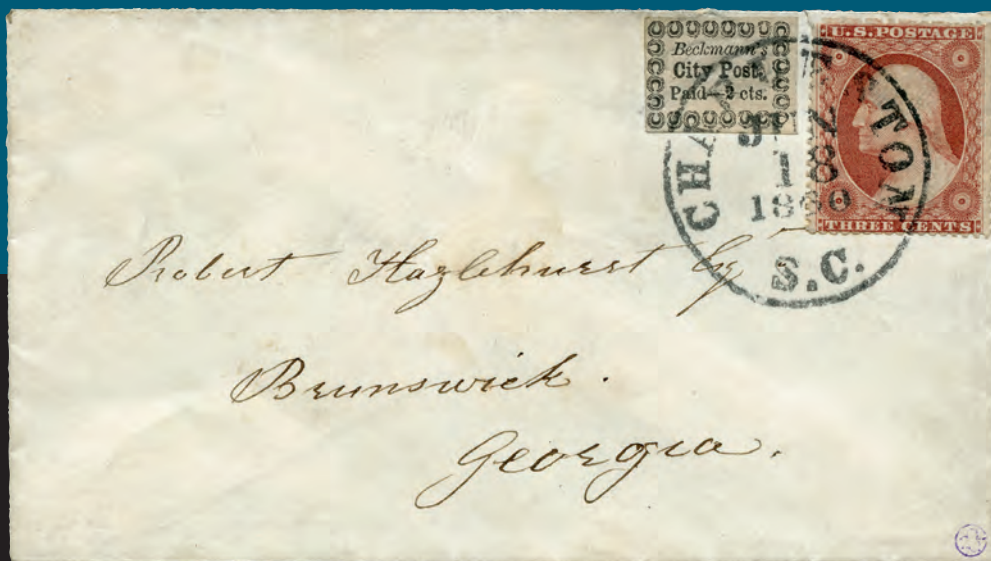 Beckmann's
City Post.
Paid—2 cts.
U.S. POSTAGE
THREE CENTS
CHARLESTON
1860
S.C.
Robert Hazlehurst Esq
Brunswick.
Georgia.